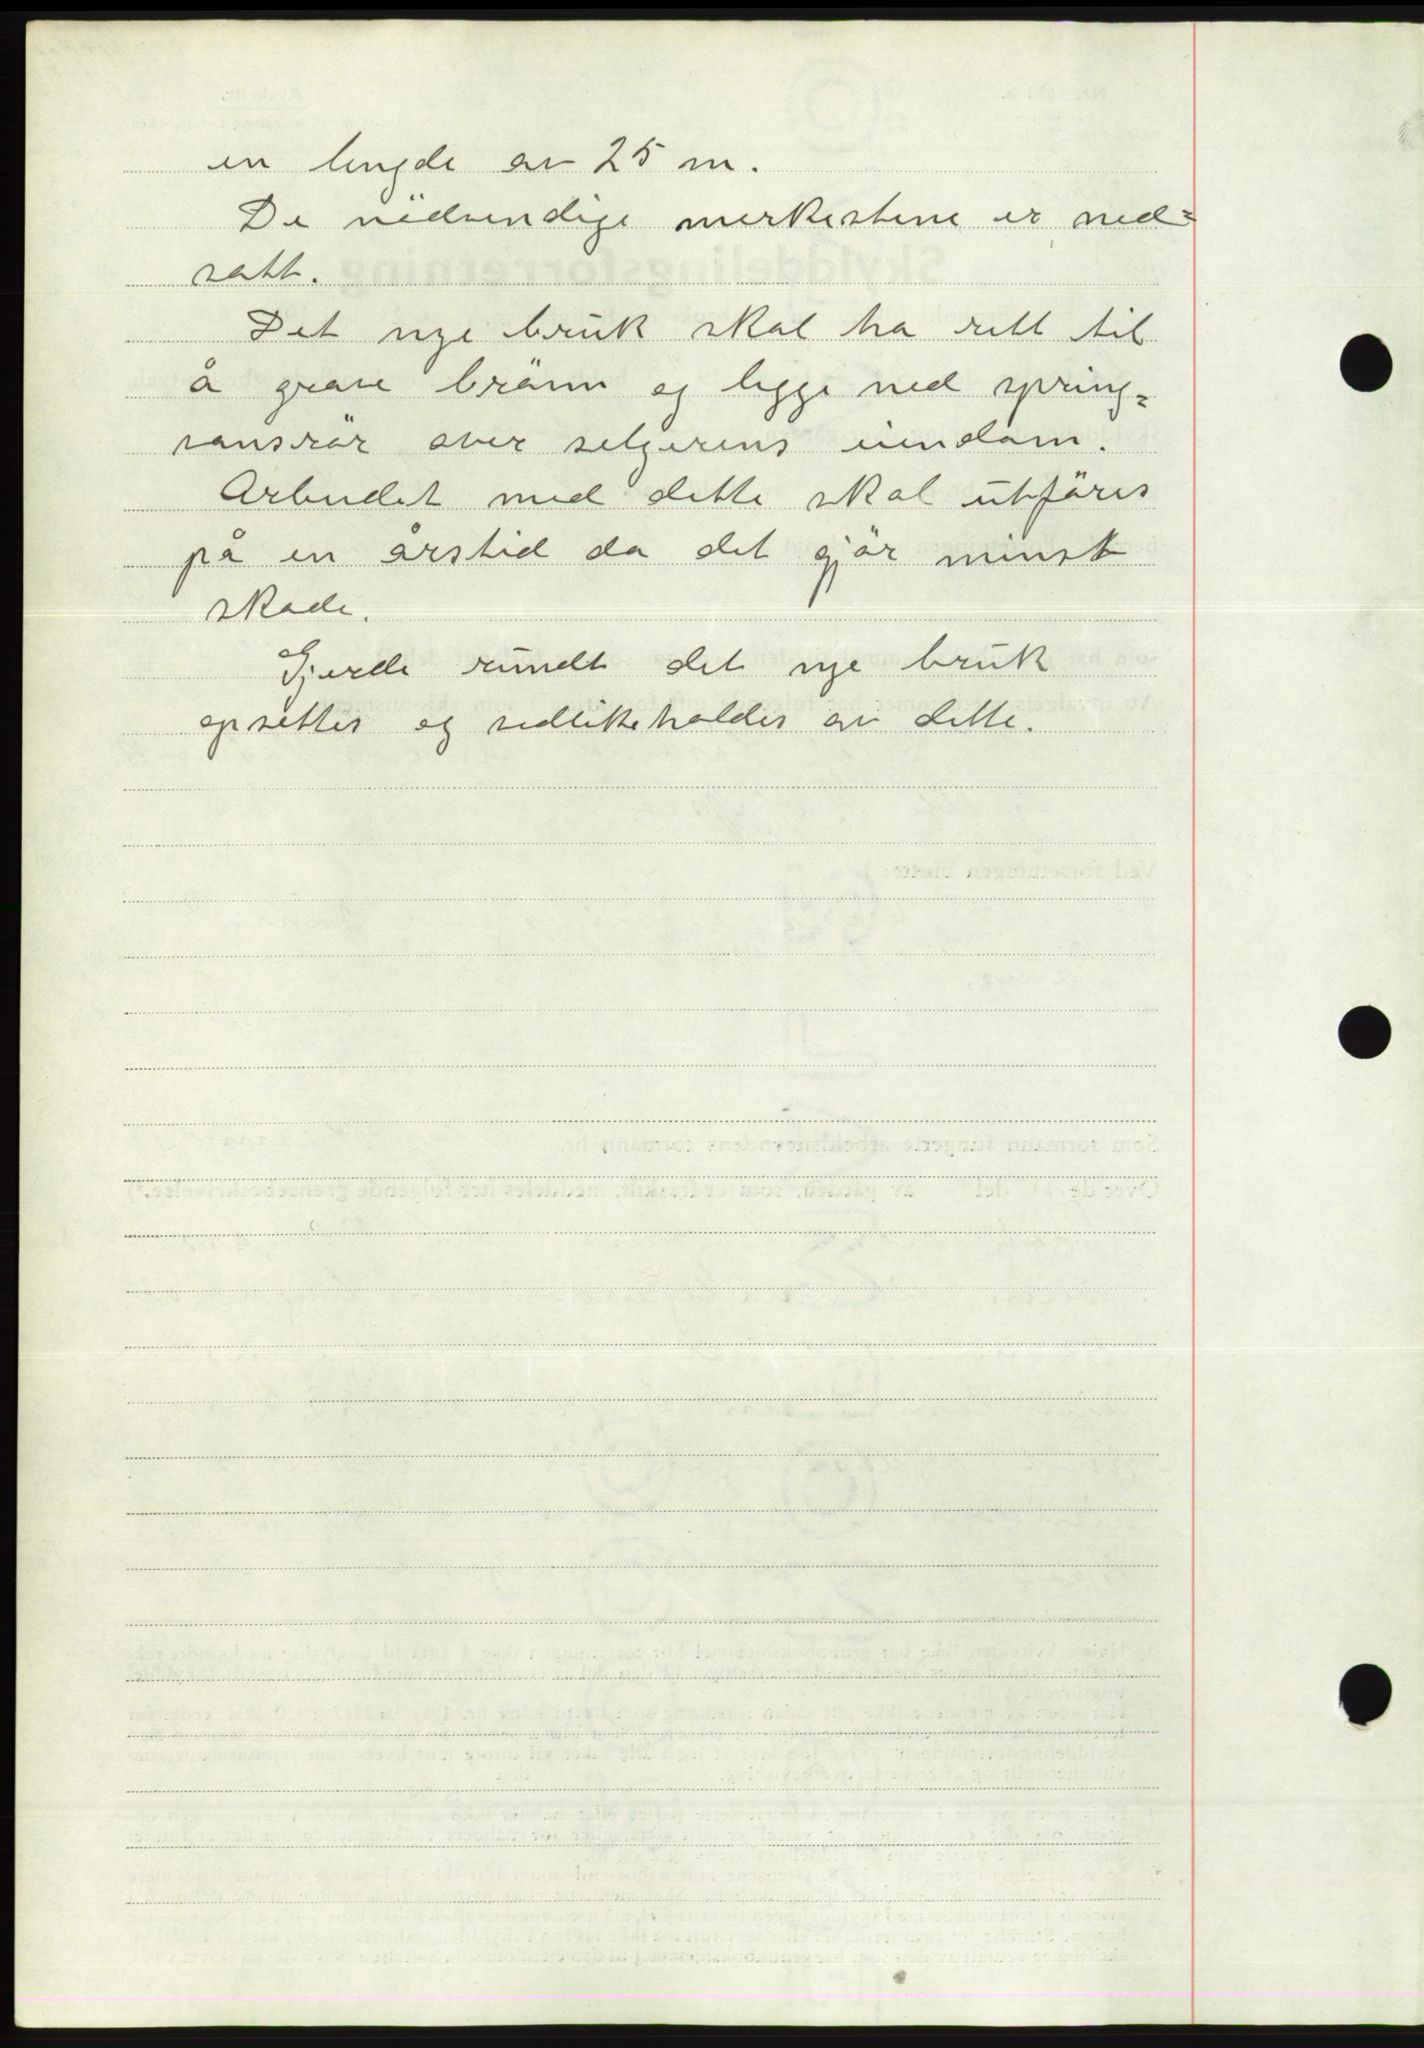 en lengde av 25 m.
De nödvendige merkestene er ned=
satt.
Det nye bruk skal ha rett til
å grave brönn og legge ned spring=
vansrör over selgerens eiendom.
Arbeidet med dette skal utföres
på en årstid da det gjör minst
skade.
Gjerde rundt det nye bruk
opsettes og vedlikeholdes av dette.